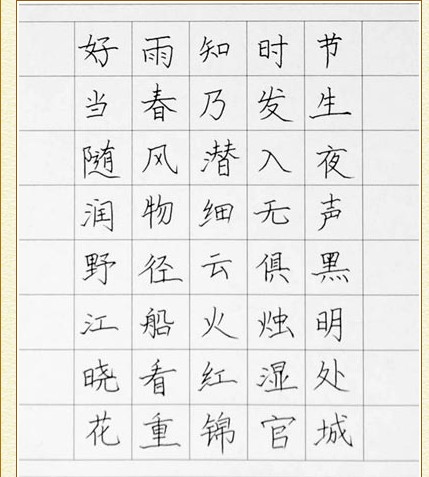 好雨知时节
当春乃发生
随风潜入夜
润物细无声
野径云俱黑
江船火烛明
晓看红湿处
花重锦官城